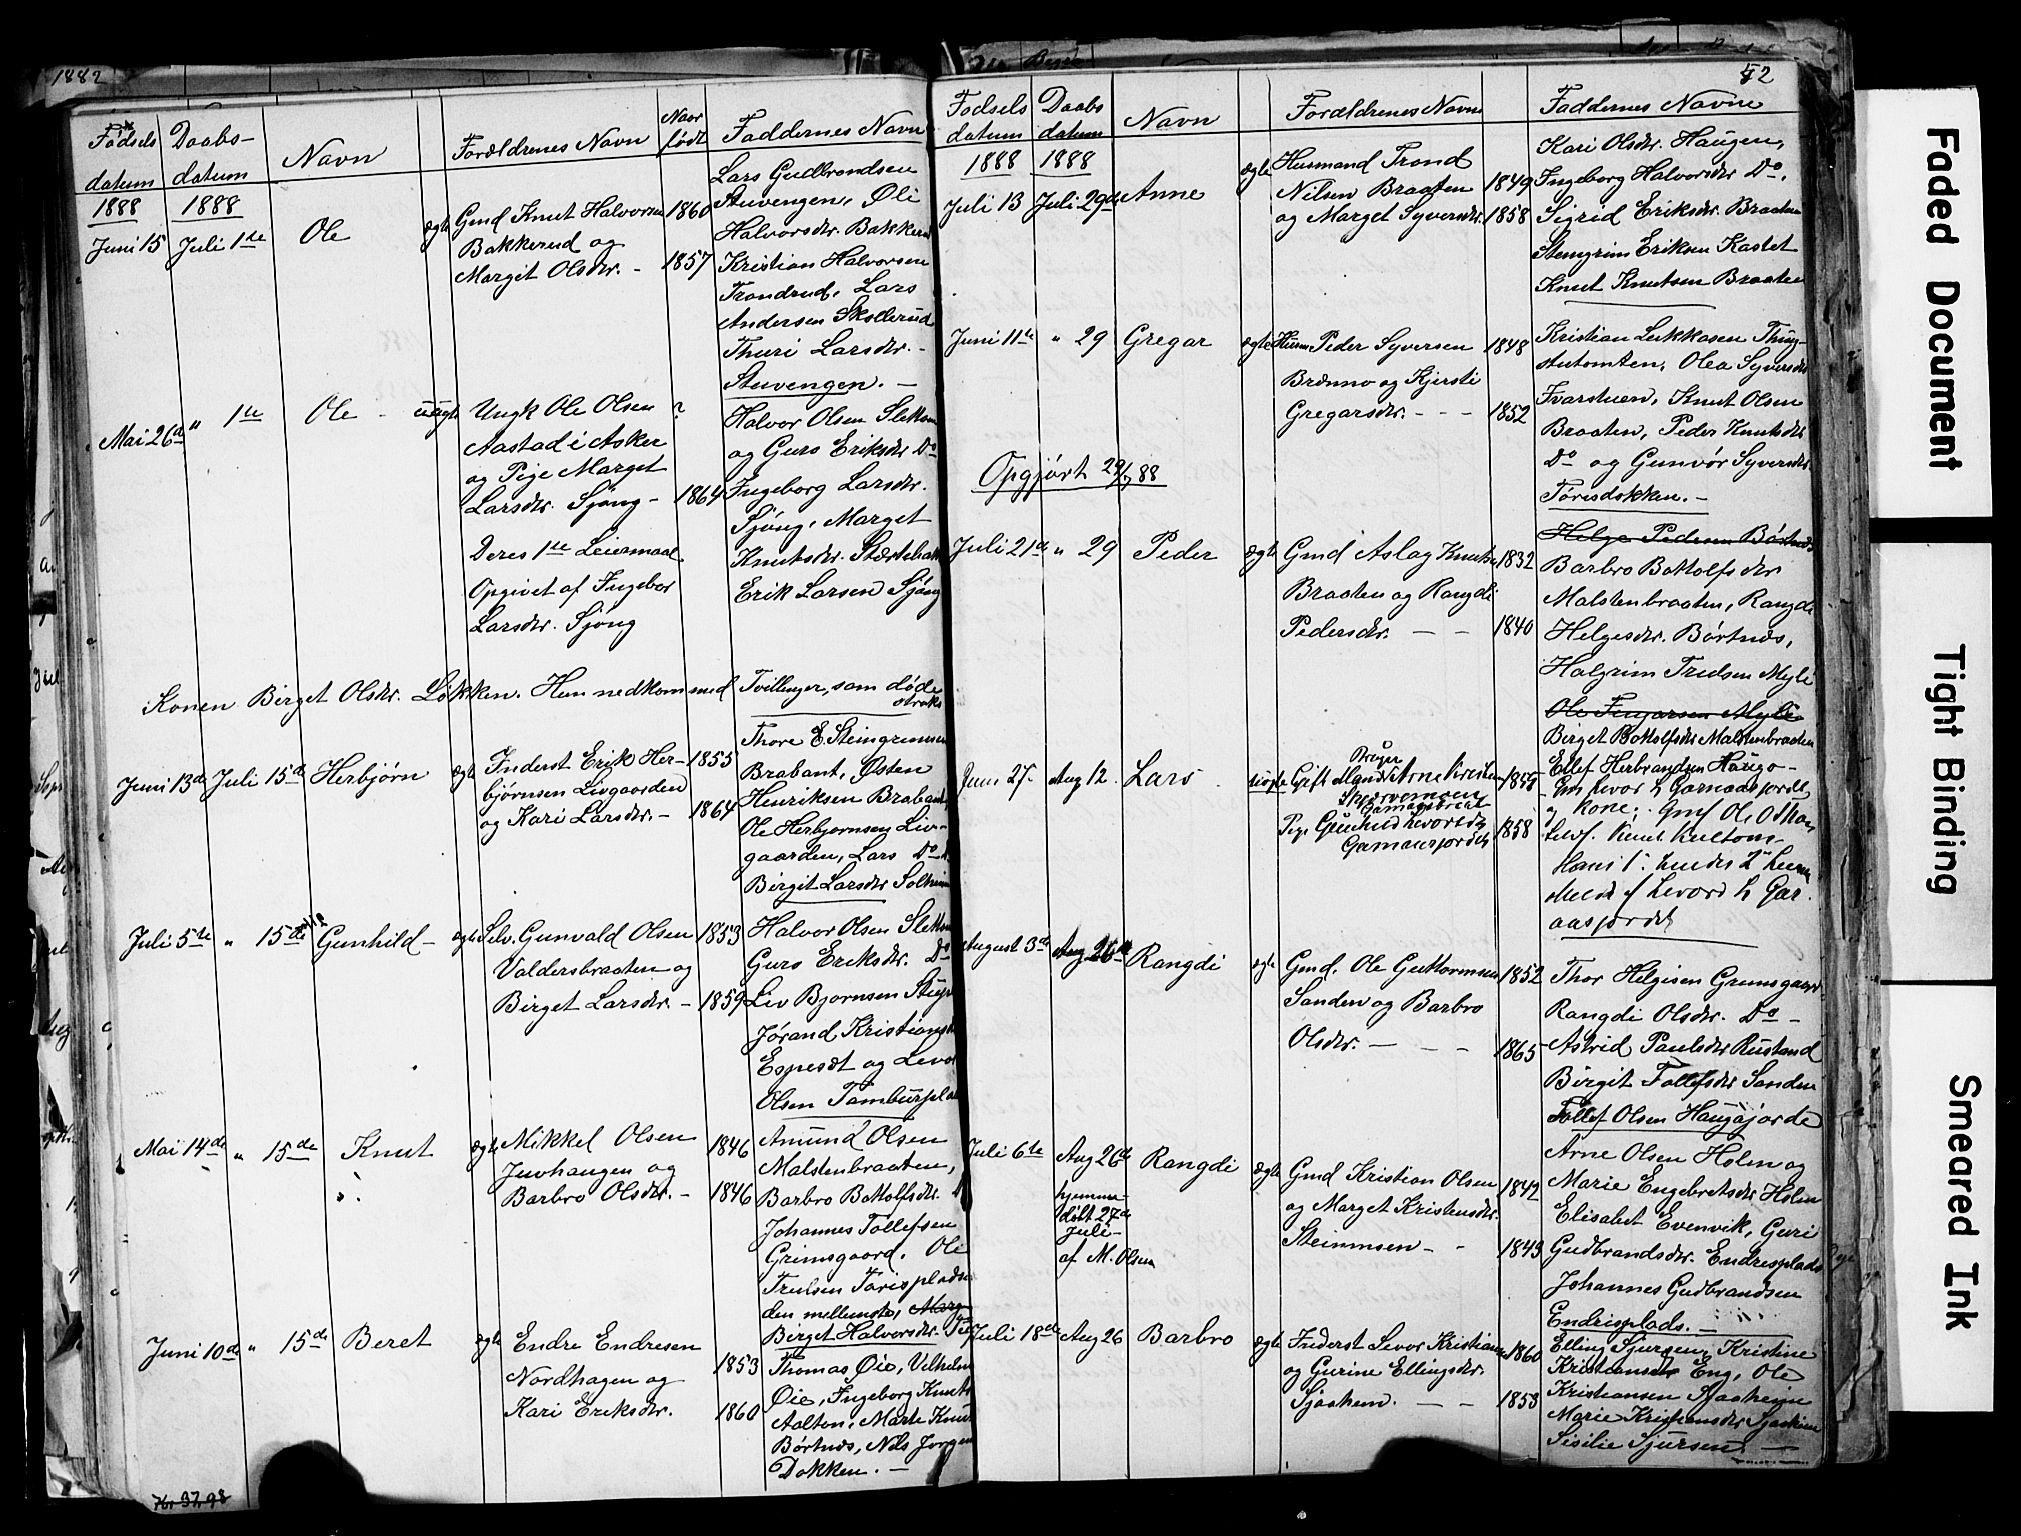 1882
Fødsels datum
Daabs-datum
Navn
Forældrenes Navn
Naar født
Faddernes Navn
1888
1888
Juni 15
Juli 1te
Ole
ægte
Gmd Knut Halvorsen
1860
Bakkerud og
Margit Olsdtr. -
1857
Lars Gudbrandsen
Stuvengen, Oli
Halvorsdtr. Bakkerud
Kristian Halvorsen
Trondrud, Lars
Andersen Skollerud
Thuri Larsdtr. -
Stuvengen. -
Mai 26de
" 1te
Ole -
uægte
Ungk Ole Olsen
?
Aastad i Asker
og Pige Marget
Larsdtr. Sjong -
1864
Deres 1te Leiermaal
Opgivet af Ingebor
Larsdtr. Sjong
Halvor Olsen Sletten
og Guro Eriksdtr Do
Ingeborg Larsdtr.
Sjong, Marget
Knutsdtr.
Erik Larsen Sjong
Konen Birget Olsdtr. Løkken. Hun nedkom med Tvillinger, som døde
straks
Juni 13de
Juli 15de
Herbjørn
ægte
Inderst Erik Her-
1855
bjørnsen Livgaarden
og Kari Larsdtr. -
1864
Thore E. Steingrimsen
Brabant, Østen
Henriksen Brabant
Ole Herbjornsen Liv-
gaarden, Lars Do
Birgit Larsdtr Solheim
Juli 5te
" 15de
Gunhild -
ægte
Selv. Gunvald Olsen
1853
Valdersbraaten og
Birget Larsdtr. -
1859
Halvor Olsen Sletten
Guro Eriksdtr. Do
Liv Bjornsen
Jørand Kristians
Espeset og Levor
Olsen Tamburpla
Mai 14de
" 15de
Knut
ægte
Mikkel Olsen
1846
Juvhaugen og
Barbro Olsdtr. -
1846
Amund Olsen
Malstenbraaten,
Barbro Bottolfsdtr. D
Johannes Tollefsen
Grimsgaard. Ole
Trulsen Torisplads
den mellemste,
Birget Halvorsdtr.
Juni 10de
" 15de
Beret
ægte
Endre Endresen
1853
Nordhagen og
Kari Eriksdtr.
1860
Thomas Øie, Vilhelm
Øie, Ingeborg Knuts
Aalton, Marte Knut
Børtnæs, Nils Jorgen
Dokken. -
Kr 37,98
52
Fødsels datum
Daabs datum
Navn
Forældrenes Navne
Faddernes Navne
1888
1888
Juli 13
Juli 29de
Anne
ægte
Husmand Trond
Nilsen Braaten
1849
og Marget Syversdtr.
1858
Kari Olsdtr. Haugen,
Ingeborg Halvorsdtr Do,
Sigrid Eriksdtr. Braaten
Stengrim Eriksen Kastet
Knut Knutsen Braaten
Juni 11te
" 29
Gregar
ægte
Husm Peder Syversen
1848
Brenno og Kjersti
Gregarsdtr. - - -
1852
Kristian Lukkasen Thing-
stutomten, Olea Syversdtr
Knut Olsen
Braaten, Peder Knutsdtr
Do og Gunvor Syversdtr.
Torisdokken. -
Opgjørt 29/7 88
Juli 21de
" 29
Peder
ægte
Gmd Aslag Knutsen
1832
Braaten og Rangdi
Pedersdtr. - -
1840
Helge Pedersen Børtnæs
Barbro Bottolfsdtr
Malstenbraaten, Rangdi
Helgesdtr. Børtnæs,
Halgrim Trulsen Myli
Ole Ingarsen Myli
Birget Bottolfsdtr Malstenbraaten
Juni 27.
Aug 12.
Lars
uægte
Gift Mand Arne Kristen
1859
Pige Gunhild Levorsdtr
1858
Ellef Herbrandsen Haugo-
kone;
aasjordet
August 3de
Aug 26de
Rangdi
ægte
Gmd. Ole Guttormsen
1852
Sanden og Barbro
Olsdtr. - - -
1865
Thor Helgesen Grimsgaard
Rangdi Olsdtr. Do -
Astrid Paulsdtr Rustand
Birgit Tollefsdtr Sanden
Tollef Olsen Haugajorde
Juli 6te
Aug 26de
hjemme-
døbt 27de
Juli -
af M. Olsen
Rangdi
ægte
Gmd Kristian Olsen
1842
og Marget Kristensdtr.
Steinmoen - -
1843
Arne Olsen Holm og
Marie Engebretsdtr Holm
Elisabet Evenvik, Guri
Gudbrandsdtr. Endresplads
Johannes Gudbrandsen
Endrisplads. -
Juli 18de
Aug 26
Barbro
ægte
Inderst Levor Kristiansen
1860
og Gurine Ellingsdtr.
Sjaahem. - -
1853
Elling Sjursen, Kristine
Kristiansdtr Eng, Ole
Kristiansen Sjaaheim
Marie Kristiansdtr Sjaaheim
Sisilie Sjursen. -
Faded Document
Tight Binding
Smeared Ink